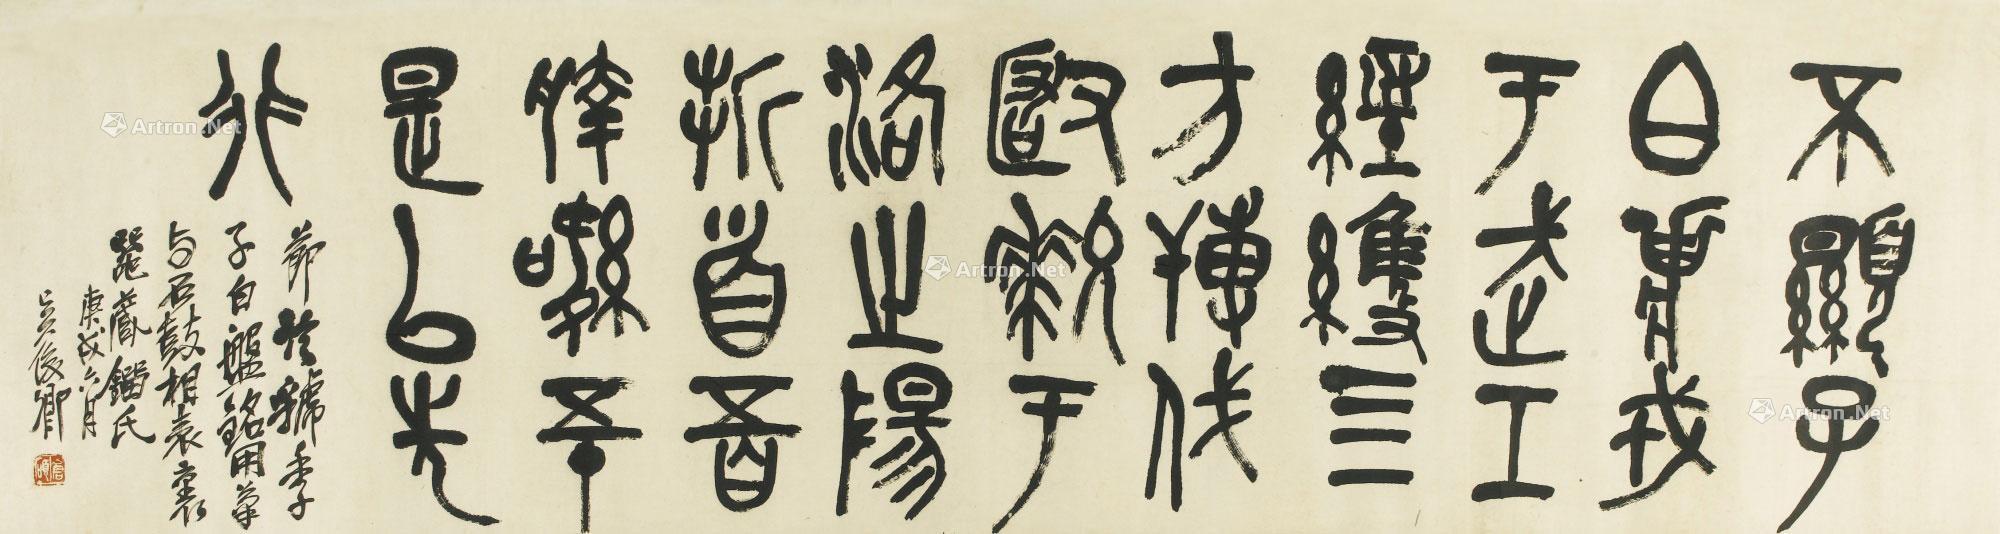 不顯子
白壯戎
于武工
經維亖
方搏伐
玁狁于
洛之陽
折首五百
執訊五十
是以先
行
節臨虢季
子白盤銘用筆
與石鼓相表裏
藏鐳氏
庚戌六月
吳俊卿
倉碩
Artron.Net
Artron.Net
Artron.Net